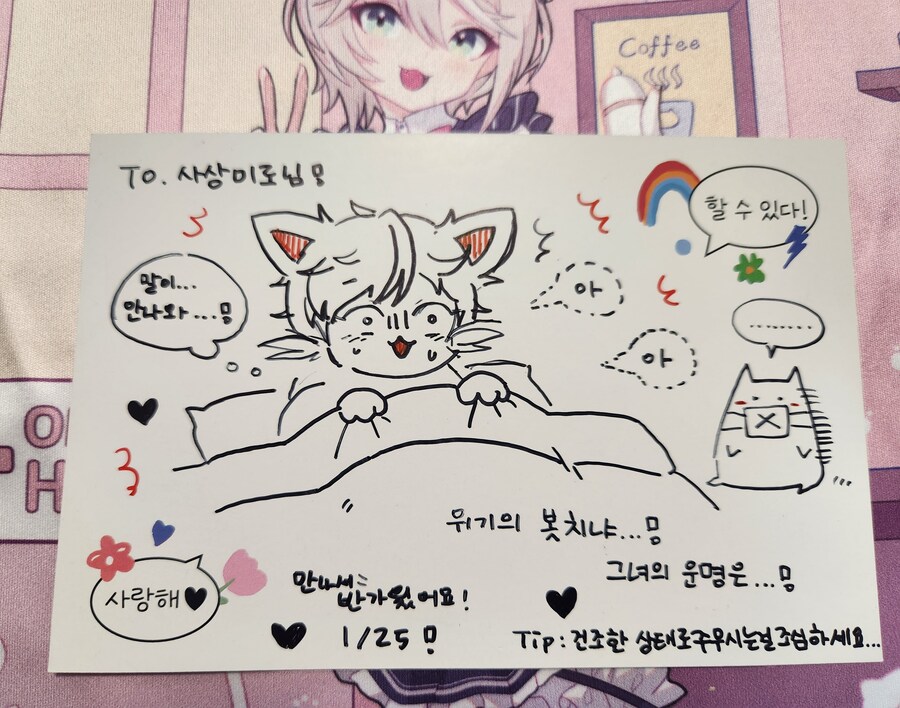 Coffee
TO. 사상미로님
할 수 있다!
말이...
안나와....
아
아
.........
위기의 봇치냐...
그녀의 운명은...
사랑해
만나서
반가웠어요!
1/25
Tip: 건조한 상태로 주무시는걸 조심하세요...